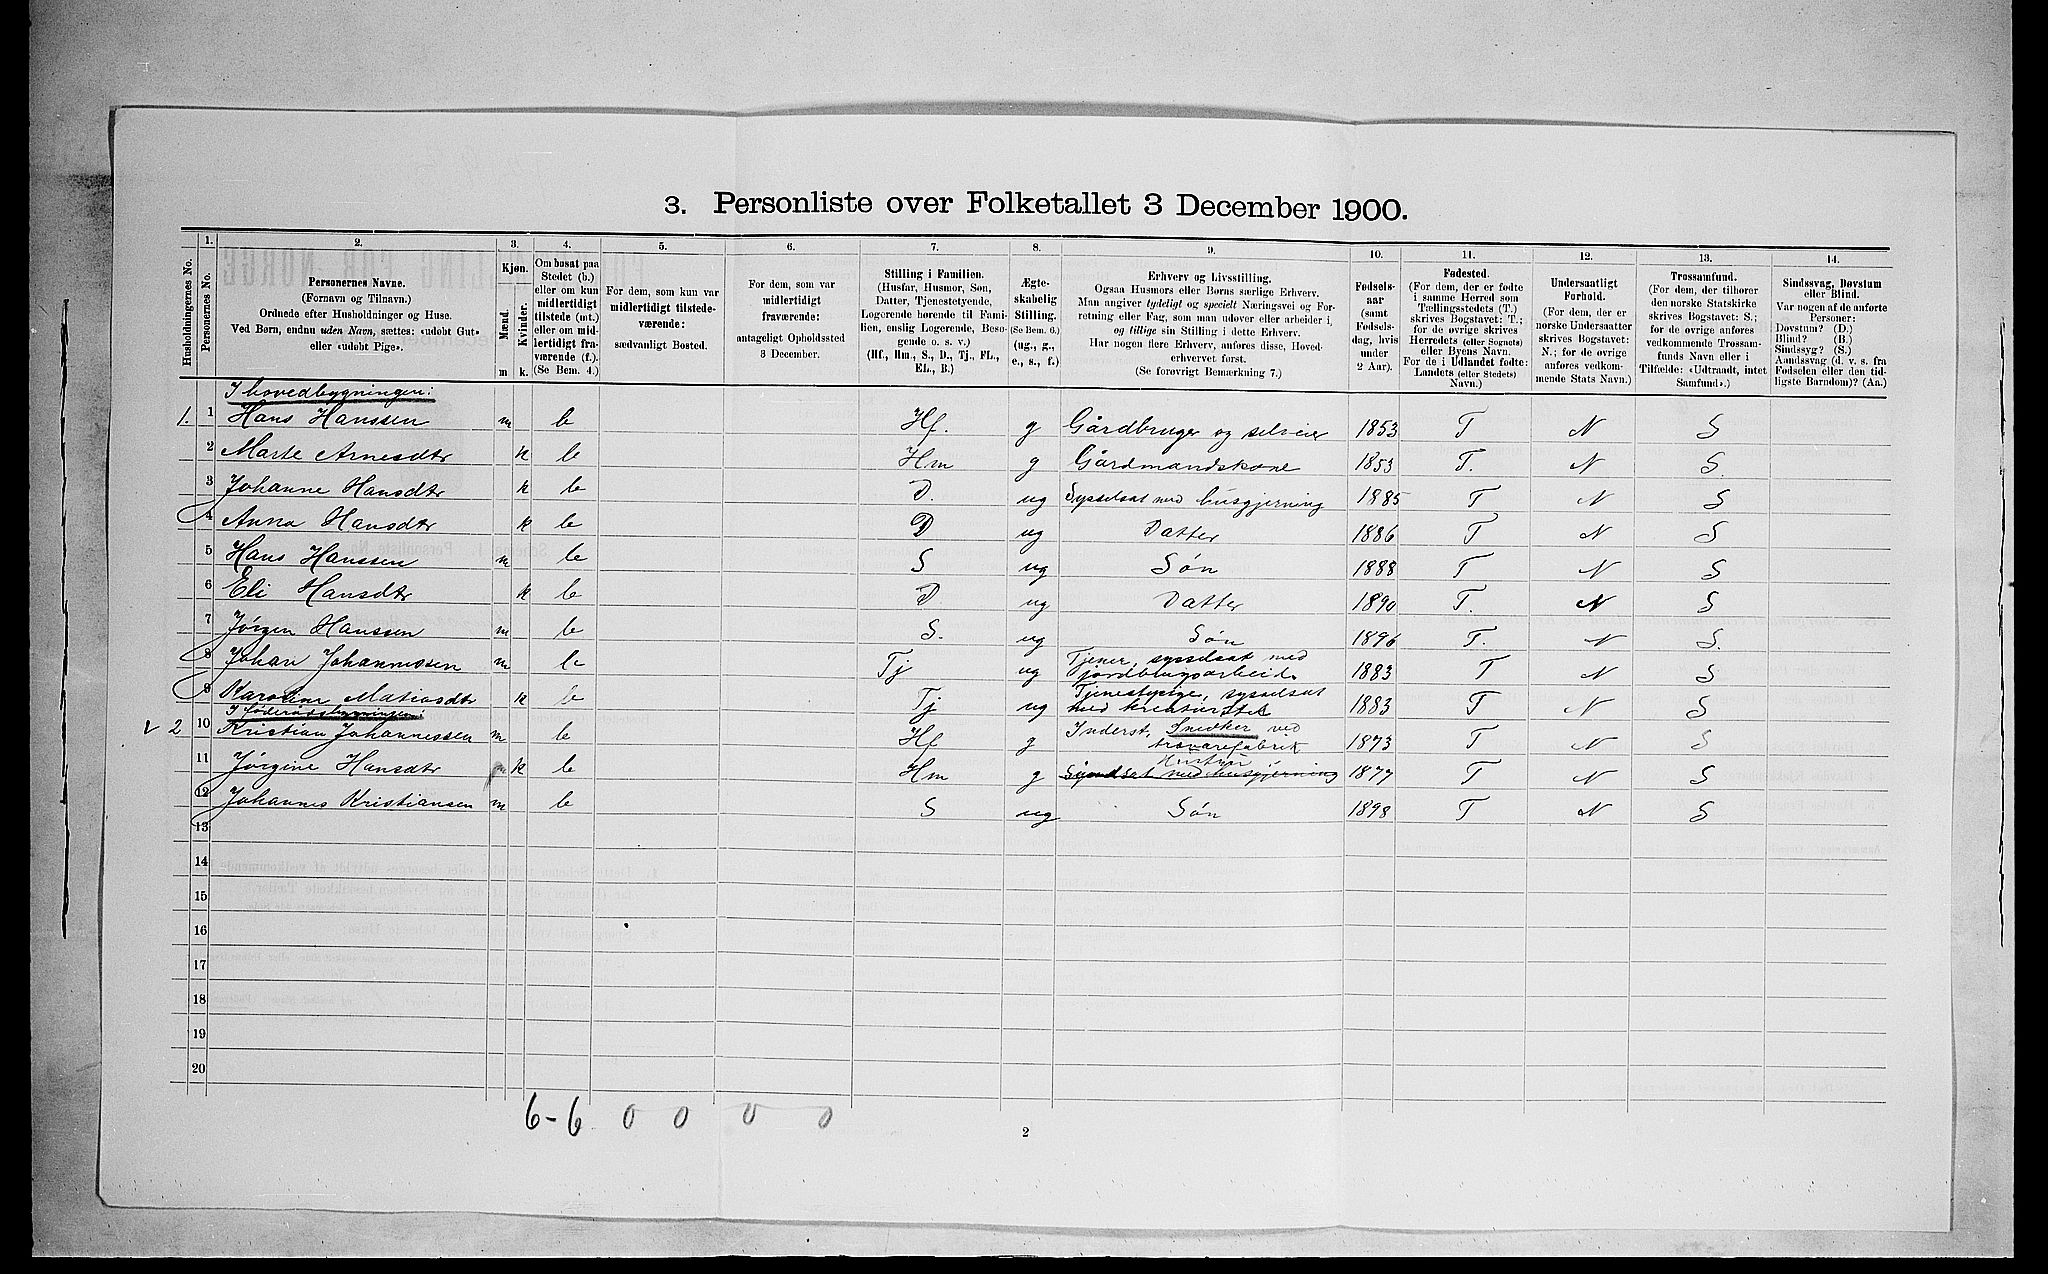 3. Personliste over Folketallet 3 December 1900.
1. 2. 3. 4. 5. 6. 7. 8. 9. 10. 11. 12. 13. 14.
Husholdningernes No.
Personernes No.
Personernes Navne.
(Fornavn og Tilnavn.)
Ordnede efter Husholdninger og Huse.
Ved Børn, endnu uden Navn, sættes: «udøbt Gut»
eller «udøbt Pige».
Kjøn.
Mænd.
Kvinder.
m k.
Om bosat paa
Stedet (b.)
eller om kun
midlertidigt
tilstede (mt.)
eller om mid-
lertidigt fra-
værende (f.).
(Se Bem. 4.)
For dem, som kun var
midlertidigt tilstede-
værende:
sædvanligt Bosted.
For dem, som var
midlertidigt
fraværende:
antageligt Opholdssted
3 December.
Stilling i Familien.
(Husfar, Husmor, Søn,
Datter, Tjenestetyende,
Logerende hørende til Fami-
lien, enslig Logerende, Besø-
gende o. s. v.)
(Hf., Hm., S., D., Tj., FL.,
EL., B.)
Ægte-
skabelig
Stilling.
(Se Bem. 6.)
(ug., g.,
e., s., f.)
Erhverv og Livsstilling.
Ogsaa Husmors eller Børns særlige Erhverv.
Man angiver tydeligt og specielt Næringsvei og For-
retning eller Fag, som man udøver eller arbeider i,
og tillige sin Stilling i dette Erhverv.
Har nogen flere Erhverv, anføres disse, Hoved-
erhvervet først.
(Se forøvrigt Bemerkning 7.)
Fødsels-
aar
(samt
Fødsels-
dag, hvis
under
2 Aar).
Fødested.
(For dem, der er fødte
i samme Herred som
Tællingsstedets (T.)
skrives Bogstavet: T.;
for de øvrige skrives
Herredets (eller Sognets)
eller Byens Navn.
For de i Udlandet fødte:
Landets (eller Stedets)
Navn.)
Undersaatligt
Forhold.
(For dem, der er
norske Undersaatter
skrives Bogstavet:
N.; for de øvrige
anføres vedkom-
mende Stats Navn.)
Trossamfund.
(For dem, der tilhører
den norske Statskirke
skrives Bogstavet: S.;
for de øvrige anføres
vedkommende Trossam-
funds Navn eller i
Tilfælde: «Udtraadt, intet
Samfund».)
Sindssvag, Døvstum
eller Blind.
Var nogen af de anførte
Personer:
Døvstum? (D.)
Blind? (B.)
Sindssyg? (S.)
Aandssvag (d. v. s. fra
Fødselen eller den tid-
ligste Barndom)? (Aa.)
I hovedbygningen:
1. 1 Hans Hanssen m b Hf. g Gårdbruger og selveier 1853 T N S
2 Marte Arnesdtr k b Hm g Gårdmandskone 1853 T. N S.
3 Johanne Hansdtr k b D. ug Sysselsat med husgjerning 1885 T N S
4 Anna Hansdtr k b D ug Datter 1886 T N S
5 Hans Hanssen m b S ug Søn 1888 T N S
6 Eli Hansdtr k b D ug Datter 1890 T. N S
7 Jørgen Hanssen m b S. ug Søn 1896 T. N S.
8 Johan Johannessen m b Tj ug Tjener, sysselsat med
jordbrugsarbeide 1883 T N S
9 Karoline Matiasdtr k b Tj ug Tjenestepige, sysselsat
med kreaturstel 1883 T N S
I føderådsbygningen:
v 2 10 Kristian Johannessen m b Hf g Inderst, Snedker ved
trævarefabrik 1873 T N S
Hustru
11 Jørgine Hansdtr m k b Hm g Sysselsat med husgjerning 1877 T N S
12 Johannes Kristiansen m b S ug Søn 1898 T N S
13
14
15
16
17
18
19
20
6-6 0 0 0 0
2